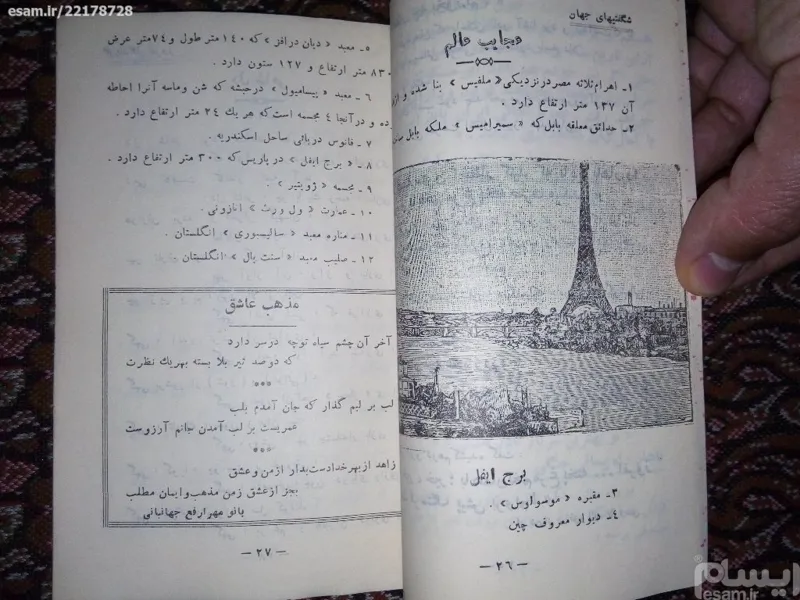 esam.ir/22178728
شگفتیهای جهان
عجایب عالم
۱ـ اهرام ثلاثه مصر در نزدیکی «ملفیس» بنا شده و
آن ۱۳۷ متر ارتفاع دارد .
۲ـ حدائق معلقه بابل که «سمیرامیس» ملکه بابل
برج ایفل
۳ـ مقبره «موسولوس» .
۴ـ دیوار معروف چین
ـ ۲۶ ـ
۵ـ معبد «دیان درافز» که ۱۴۰ متر طول و ۷۴ متر عرض
۸۳۰ متر ارتفاع و ۱۲۷ ستون دارد .
۶ـ معبد «پیسامبول» در حبشه که شن و ماسه آنرا احاطه
و در آنجا ۴ مجسمه است که هر یك ۲۴ متر ارتفاع دارد .
۷ـ فانوس دریائی ساحل اسکندریه .
۸ـ «برج ایفل» در پاریس که ۳۰۰ متر ارتفاع دارد .
۹ـ مجسمه «ژوپتیر» .
۱۰ـ عمارت «ول ورث» اتازونی .
۱۱ـ مناره معبد «سالیسبوری» انگلستان .
۱۲ـ صلیب معبد «سنت پال» انگلستان
مذهب عاشق
آخر آن چشم سیاه توچه درسر دارد
که دوصد تیر بلا بسته بهریك نظرت
***
لب بر لبم گذار که جان آمدم بلب
عمریست بر لب آمدن جانم آرزوست
***
زاهد از بهر خدا دست بدار از من و عشق
بجز از عشق ز من مذهب و ایمان مطلب
بانو مهر ارفع جهانبانی
ـ ۲۷ ـ
ایسام
esam.ir